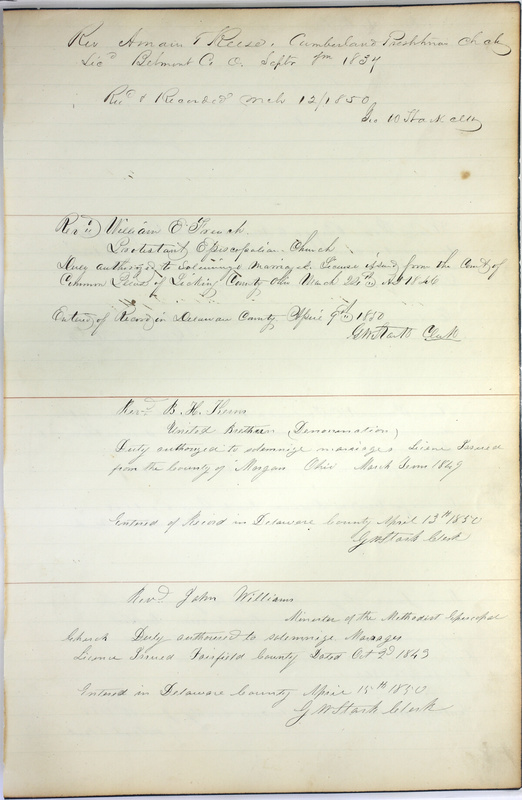 Rev Amam T Reese. Cumberland Presbterian Ch
Lisd Belmont Co O. Septr 1834
Recd & Recorded Mch 12/1850
Geo W Stark Clk
Revd William E French.
Protestant Episcopalian Church
Duly authorized to Solemnize Marriages License issued from the Court of
Common Pleas of Licking County Ohio March 24th AD 1846
Entered of Record in Delaware County April 9th 1850
G W Stark Clerk
Revd. B. H. Kerns
United Brethren (Denomination)
Duly authorized to solemnize marriages License Issued
from the County of Morgan Ohio March Term 1849
Entered of Record in Delaware County April 13th 1850
G W Stark Clerk
Revd John Williams
Minister of the Methodist Episcopal
Church Duly authorized to solemnize Marages
Licence Issued Fairfield County Dated Oct 2d 1843
Entered in Delaware County April 15th 1850
G W Stark Clerk